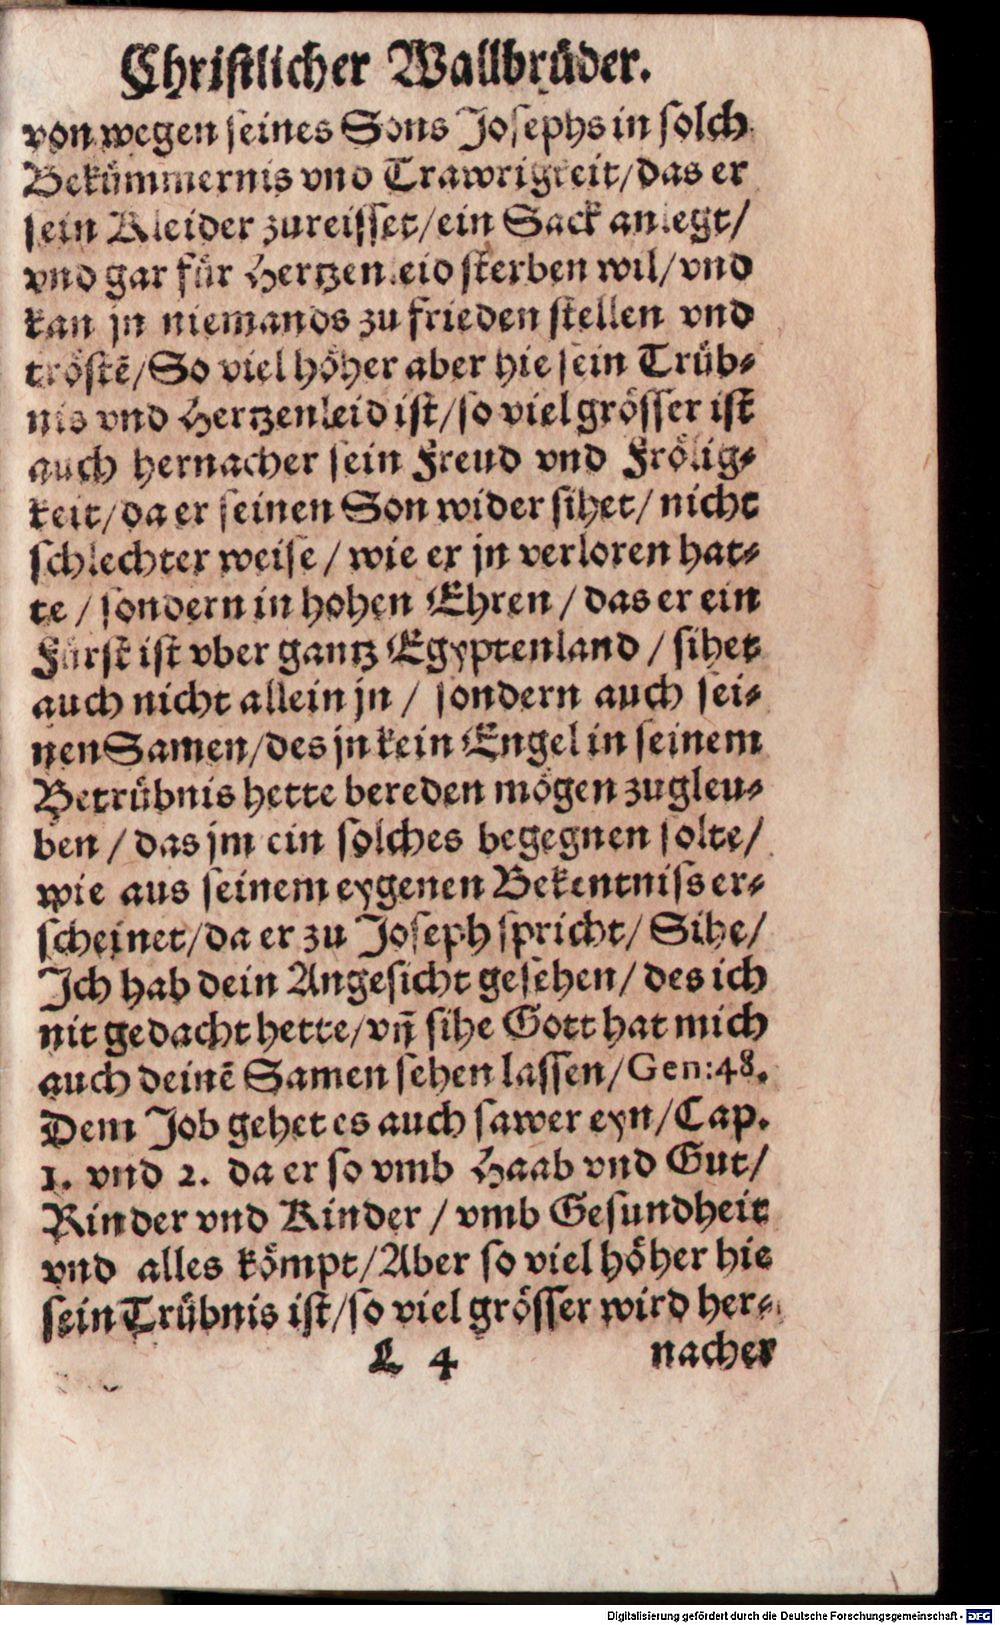 Christlicher Wallbrüder.
von wegen seines Sons Josephs in solch
Bekümmernis vnd Trawrigkeit/das er
sein Kleider zureisset/ein Sack anlegt/
vnd gar für Hertzenleid sterben wil/vnd
kan jn niemands zu frieden stellen vnd
tröstẽ/So viel höher aber hie sein Trüb-
nis vnd Hertzenleid ist/so viel grösser ist
auch hernacher sein Freud vnd Frölig-
keit/da er seinen Son wider sihet/nicht
schlechter weise/wie er jn verloren hat-
te/sondern in hohen Ehren/das er ein
Fürst ist vber gantz Egyptenland/sihet
auch nicht allein jn/sondern auch sei-
nen Samen/des jn kein Engel in seinem
Betrübnis hette bereden mögen zugleu-
ben/das jm ein solches begegnen solte/
wie aus seinem eygenen Bekentniss er-
scheinet/da er zu Joseph spricht/Sihe/
Ich hab dein Angesicht gesehen/des ich
nit gedacht hette/vñ sihe Gott hat mich
auch deinẽ Samen sehen lassen/Gen:48.
Dem Job gehet es auch sawer eyn/Cap.
1. vnd 2. da er so vmb Haab vnd Gut/
Rinder vnd Kinder/vmb Gesundheit
vnd alles kömpt/Aber so viel höher hie
sein Trübnis ist/so viel grösser wird her-
L 4 nacher
Digitalisierung gefördert durch die Deutsche Forschungsgemeinschaft - DFG